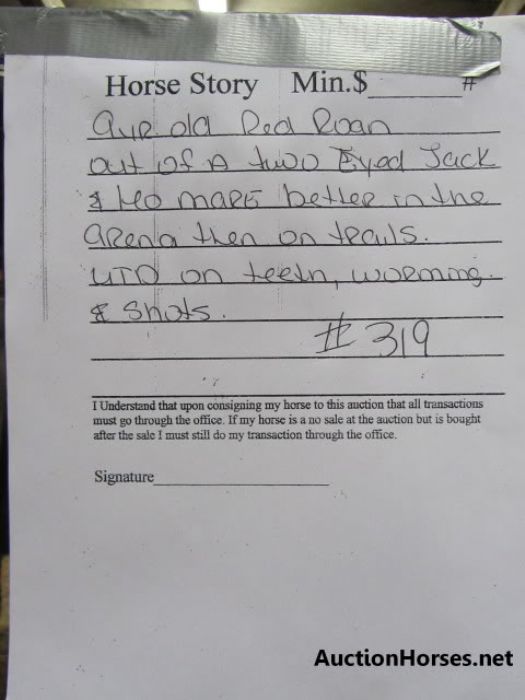 Horse Story Min.$______#
9yr old Red Roan
out of A two Eyed Jack
& Leo mare better in the
arena then on trails.
UTD on teeth, worming.
& Shots.
# 319
I Understand that upon consigning my horse to this auction that all transactions
must go through the office. If my horse is a no sale at the auction but is bought
after the sale I must still do my transaction through the office.
Signature______
AuctionHorses.net